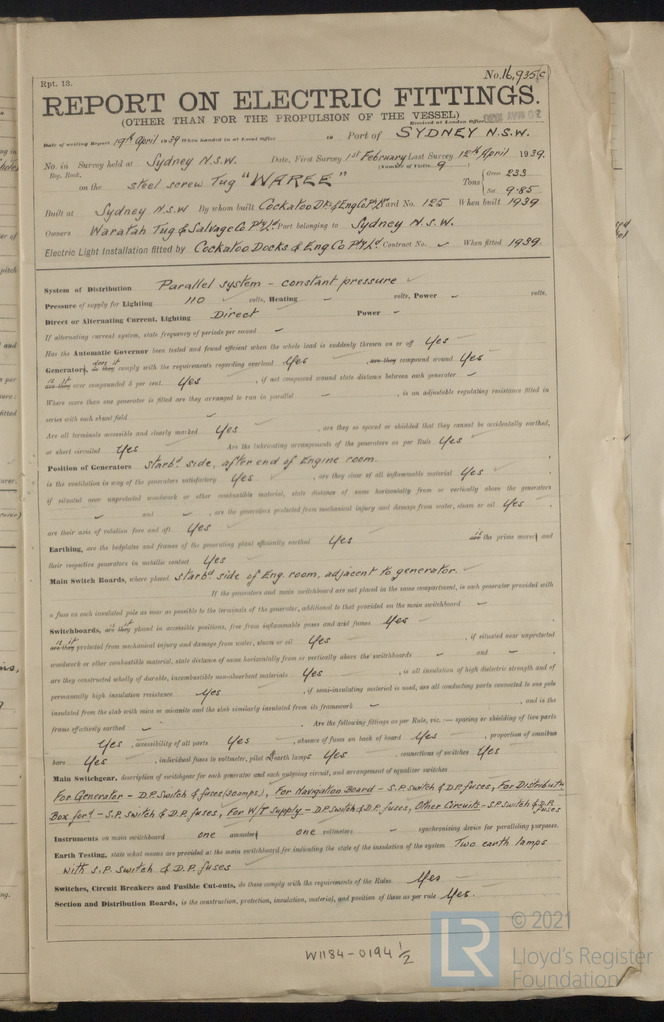 Rpt. 13.
No. 16,935(c)
REPORT ON ELECTRIC FITTINGS.
(OTHER THAN FOR THE PROPULSION OF THE VESSEL)
Received at London Office
Date of writing Report 19th April 1939 When handed in at Local Office 19 Port of SYDNEY N.S.W.
No. in Survey held at Sydney N.S.W. Date, First Survey 1st February Last Survey 12th April 1939.
Reg. Book. (Number of Visits 9)
on the steel screw Tug "WAREE" Tons { Gross 233
Net 9.85
Built at Sydney N.S.W By whom built Cockatoo D. & Eng Co Pty Ld Yard No. 125 When built 1939
Owners Waratah Tug & Salvage Co Pty Ld Port belonging to Sydney N.S.W.
Electric Light Installation fitted by Cockatoo Docks & Eng Co Pty Ld Contract No. ✓ When fitted 1939.
System of Distribution Parallel system - constant pressure ✓
Pressure of supply for Lighting 110 ✓ volts, Heating ✓ volts, Power ✓ volts.
Direct or Alternating Current, Lighting Direct ✓ Power ✓
If alternating current system, state frequency of periods per second ✓
Has the Automatic Governor been tested and found efficient when the whole load is suddenly thrown on or off Yes ✓
Generators, does it comply with the requirements regarding overload Yes ✓, are they compound wound Yes ✓
is it are they over compounded 5 per cent. Yes ✓, if not compound wound state distance between each generator ✓
Where more than one generator is fitted are they arranged to run in parallel ✓, is an adjustable regulating resistance fitted in
series with each shunt field ✓
Are all terminals accessible and clearly marked Yes ✓, are they so spaced or shielded that they cannot be accidentally earthed,
or short circuited Yes ✓ Are the lubricating arrangements of the generators as per Rule Yes ✓
Position of Generators Starbd. side, after end of Engine room.
is the ventilation in way of the generators satisfactory Yes ✓, are they clear of all inflammable material Yes ✓,
if situated near unprotected woodwork or other combustible material, state distance of same horizontally from or vertically above the generators
✓ and ✓, are the generators protected from mechanical injury and damage from water, steam or oil Yes ✓,
are their axis of rotation fore and aft Yes
Earthing, are the bedplates and frames of the generating plant efficiently earthed Yes ✓ is the prime mover and
their respective generators in metallic contact Yes ✓
Main Switch Boards, where placed Starbd side of Eng. room, adjacent to generator. ✓
If the generators and main switchboard are not placed in the same compartment, is each generator provided with
a fuse on each insulated pole as near as possible to the terminals of the generator, additional to that provided on the main switchboard ✓
Switchboards, is it are they placed in accessible positions, free from inflammable gases and acid fumes Yes ✓,
is it are they protected from mechanical injury and damage from water, steam or oil Yes ✓, if situated near unprotected
woodwork or other combustible material, state distance of same horizontally from or vertically above the switchboards ✓ and ✓,
are they constructed wholly of durable, incombustible non-absorbent materials Yes ✓, is all insulation of high dielectric strength and of
permanently high insulation resistance Yes ✓, if semi-insulating material is used, are all conducting parts connected to one pole
insulated from the slab with mica or micanite and the slab similarly insulated from its framework ✓, and is the
frame effectively earthed ✓. Are the following fittings as per Rule, viz.:— spacing or shielding of live parts
Yes ✓, accessibility of all parts Yes ✓, absence of fuses on back of board Yes ✓, proportion of omnibus
bars Yes ✓, individual fuses to voltmeter, pilot & earth lamps Yes ✓, connections of switches Yes ✓
Main Switchgear, description of switchgear for each generator and each outgoing circuit, and arrangement of equalizer switches
For Generator - D.P. Switch & fuses (300 amps), For Navigation Board - S.P. Switch & D.P. fuses, For Distribn
Box for'd - S.P. switch & D.P. fuses, For W/T Supply - D.P. switch & D.P. fuses, Other Circuits - S.P. Switch & D.P. fuses
Instruments on main switchboard one ammeter one voltmeter ✓ synchronising device for paralleling purposes.
Earth Testing, state what means are provided at the main switchboard for indicating the state of the insulation of the system Two earth lamps
with S.P. switch & D.P. fuses ✓
Switches, Circuit Breakers and Fusible Cut-outs, do these comply with the requirements of the Rules Yes ✓
Section and Distribution Boards, is the construction, protection, insulation, material, and position of these as per rule Yes.
W1184-0194 1/2
LR
© 2021
Lloyd's Register
Foundation